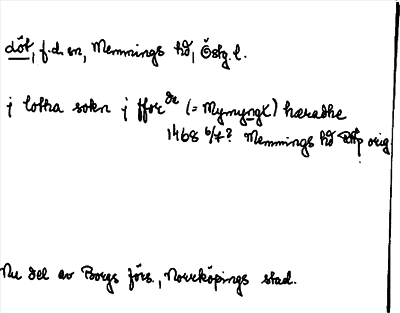 döt, f.d. sn, Memmings hd, Östg.l.
j lotha sokn j ffor de (= Mymyngx) hæradhe
1468 6/7? Memmings hd RAp orig.
Nu del av Borgs förs., Norrköpings stad.